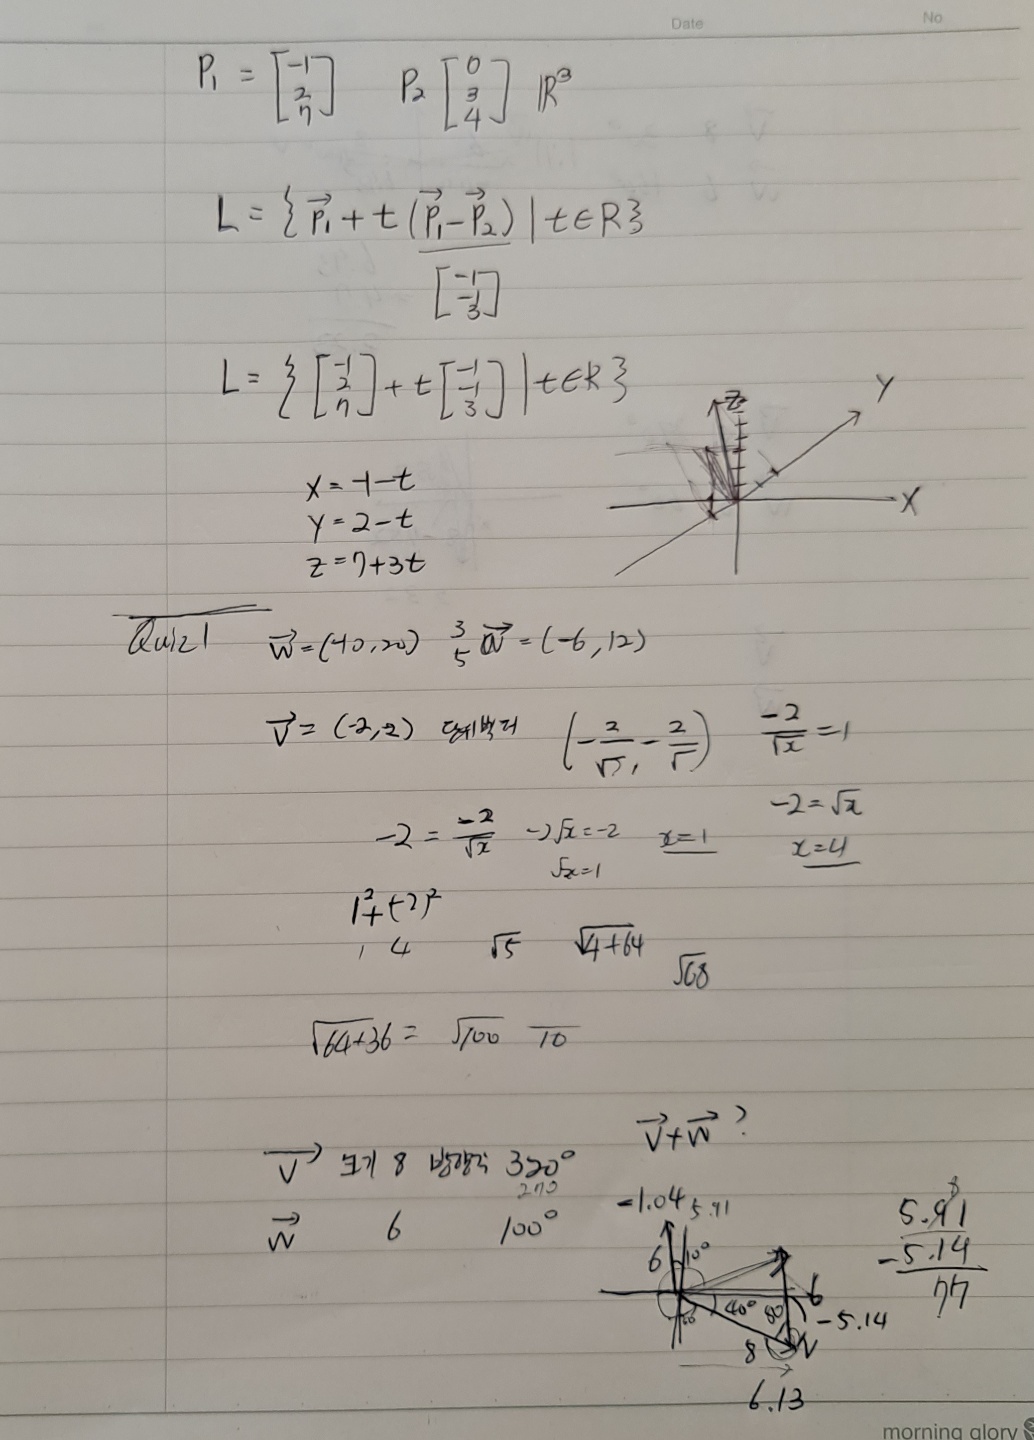 Date No
P₁ = [-1 2 7] P₂ [0 3 4] ℝ³
L = { P⃗₁ + t (P⃗₁ - P⃗₂) | t ∈ R }
[-1 -1 3]
L = { [-1 2 7] + t [-1 -1 3] | t ∈ R }
Z Y X
x = -1-t
y = 2-t
z = 7+3t
Quiz 1 w⃗ = (-10, 20) 3/5 w⃗ = (-6, 12)
v⃗ = (-2, 2) 단위벡터 (-2/√5, -2/√) -2/√x = 1
-2 = √x
-2 = -2/√x -2√x = -2 x=1 x=4
√x = 1
1² + (-2)²
1 4 √5 √4+64
√68
√64+36 = √100 10
v⃗ + w⃗ ?
v⃗ 크기 8 방향각 320°
270
w⃗ 6 100°
-1.04 5.91
6 10° 6
40° 80 -5.14
8
6.13
8
5.91
-5.14
77
morning glory